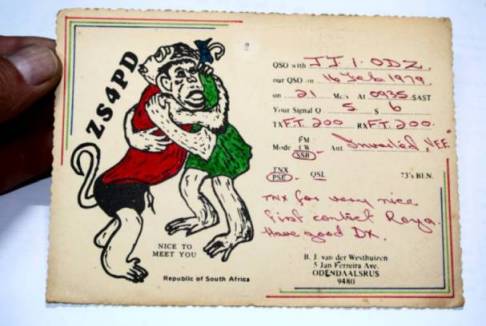 ZS4PD
NICE TO
MEET YOU
Republic of South Africa
QSO with JJ1-ODZ
our QSO on 16 Feb 1979
on 21 Mcs At 0935 SAST
Your Signal Q 5 S 6
TX FT. 200 RX FT. 200
FM
Mode CW Ant. Inverted VEE
SSB
TNX
PSE QSL 73's BEN.
TNX for very nice
first contact Roya.
Have good DX.
B. J. van der Westhuizen
5 Jan Ferreira Ave.
ODENDAALSRUS
9480